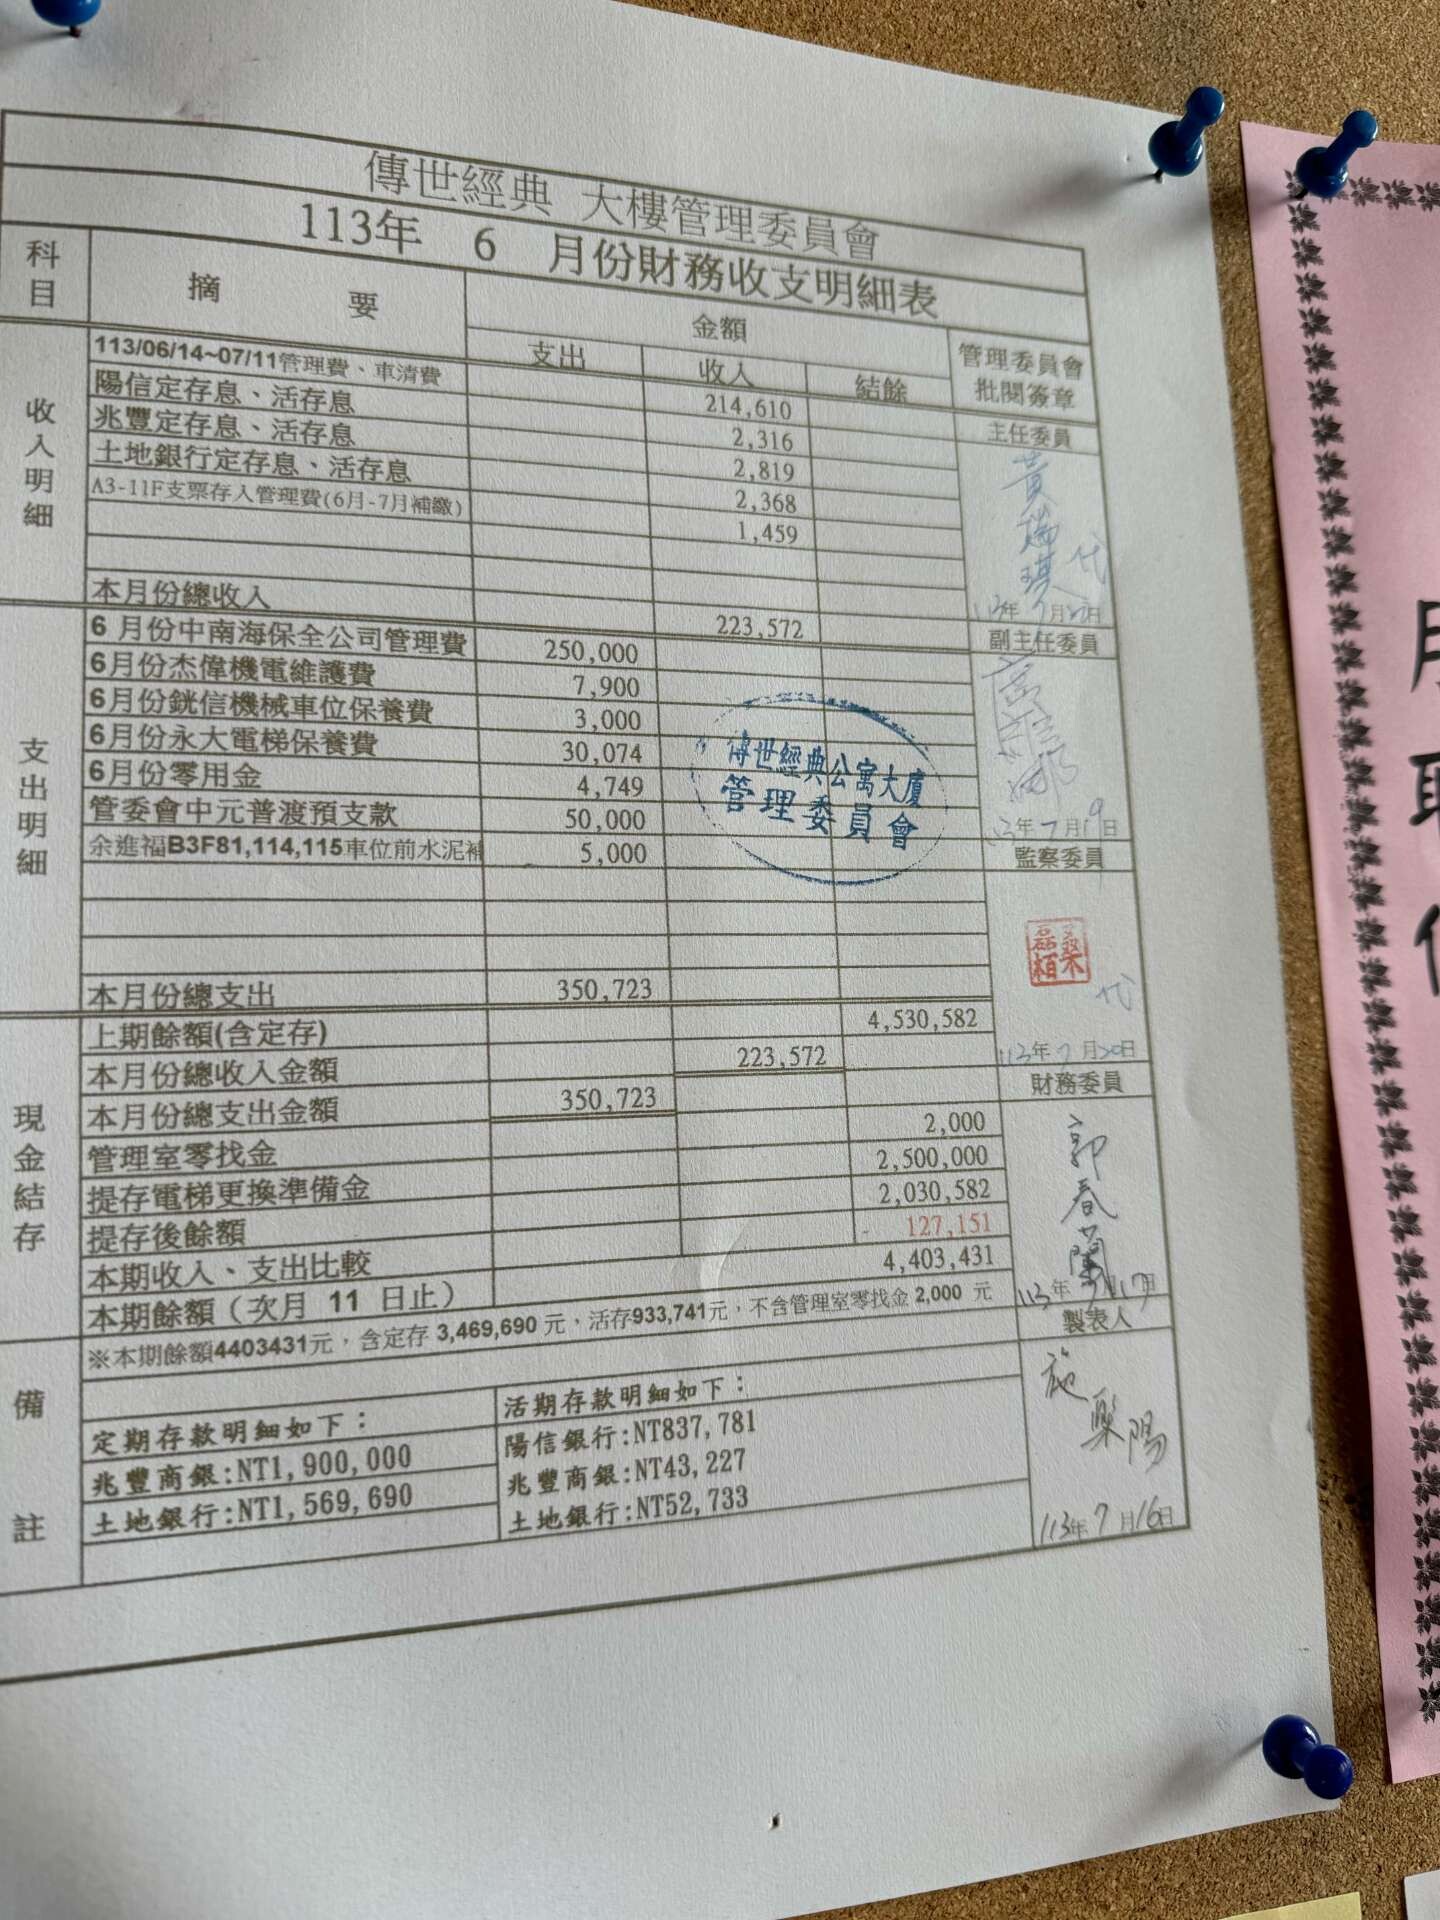 傳世經典 大樓管理委員會
113年 6 月份財務收支明細表
科目 摘要 金額 管理委員會批閱簽章
支出 收入 結餘
收入明細
113/06/14~07/11管理費、車清費 214,610
陽信定存息、活存息 2,316
兆豐定存息、活存息 2,819
土地銀行定存息、活存息 2,368
A3-11F支票存入管理費(6月-7月補繳) 1,459
本月份總收入 223,572
支出明細
6 月份中南海保全公司管理費 250,000
6月份杰偉機電維護費 7,900
6月份銧信機械車位保養費 3,000
6月份永大電梯保養費 30,074
6月份零用金 4,749
管委會中元普渡預支款 50,000
余進福B3F81,114,115車位前水泥補 5,000
本月份總支出 350,723
現金結存
上期餘額(含定存) 4,530,582
本月份總收入金額 223,572
本月份總支出金額 350,723
管理室零找金 2,000
提存電梯更換準備金 2,500,000
提存後餘額 2,030,582
本期收入、支出比較 - 127,151
本期餘額（次月 11 日止） 4,403,431
備註
※本期餘額4403431元，含定存 3,469,690 元，活存933,741元，不含管理室零找金 2,000 元
定期存款明細如下：
兆豐商銀:NT1,900,000
土地銀行:NT1,569,690
活期存款明細如下：
陽信銀行:NT837,781
兆豐商銀:NT43,227
土地銀行:NT52,733
主任委員
黃瑞琪 代
113年7月20日
副主任委員
113年7月19日
監察委員
桑磊栢
代
113年7月20日
財務委員
郭春蘭
113年7月17日
製表人
施樂陽
113年7月16日
傳世經典公寓大廈
管理委員會
月